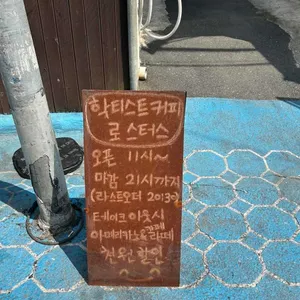 학티스트커피
로스터스
오픈 11시~
마감 21시까지
(라스트오더 20시30분)
테이크아웃시
아메리카노&카페라떼
천원할인